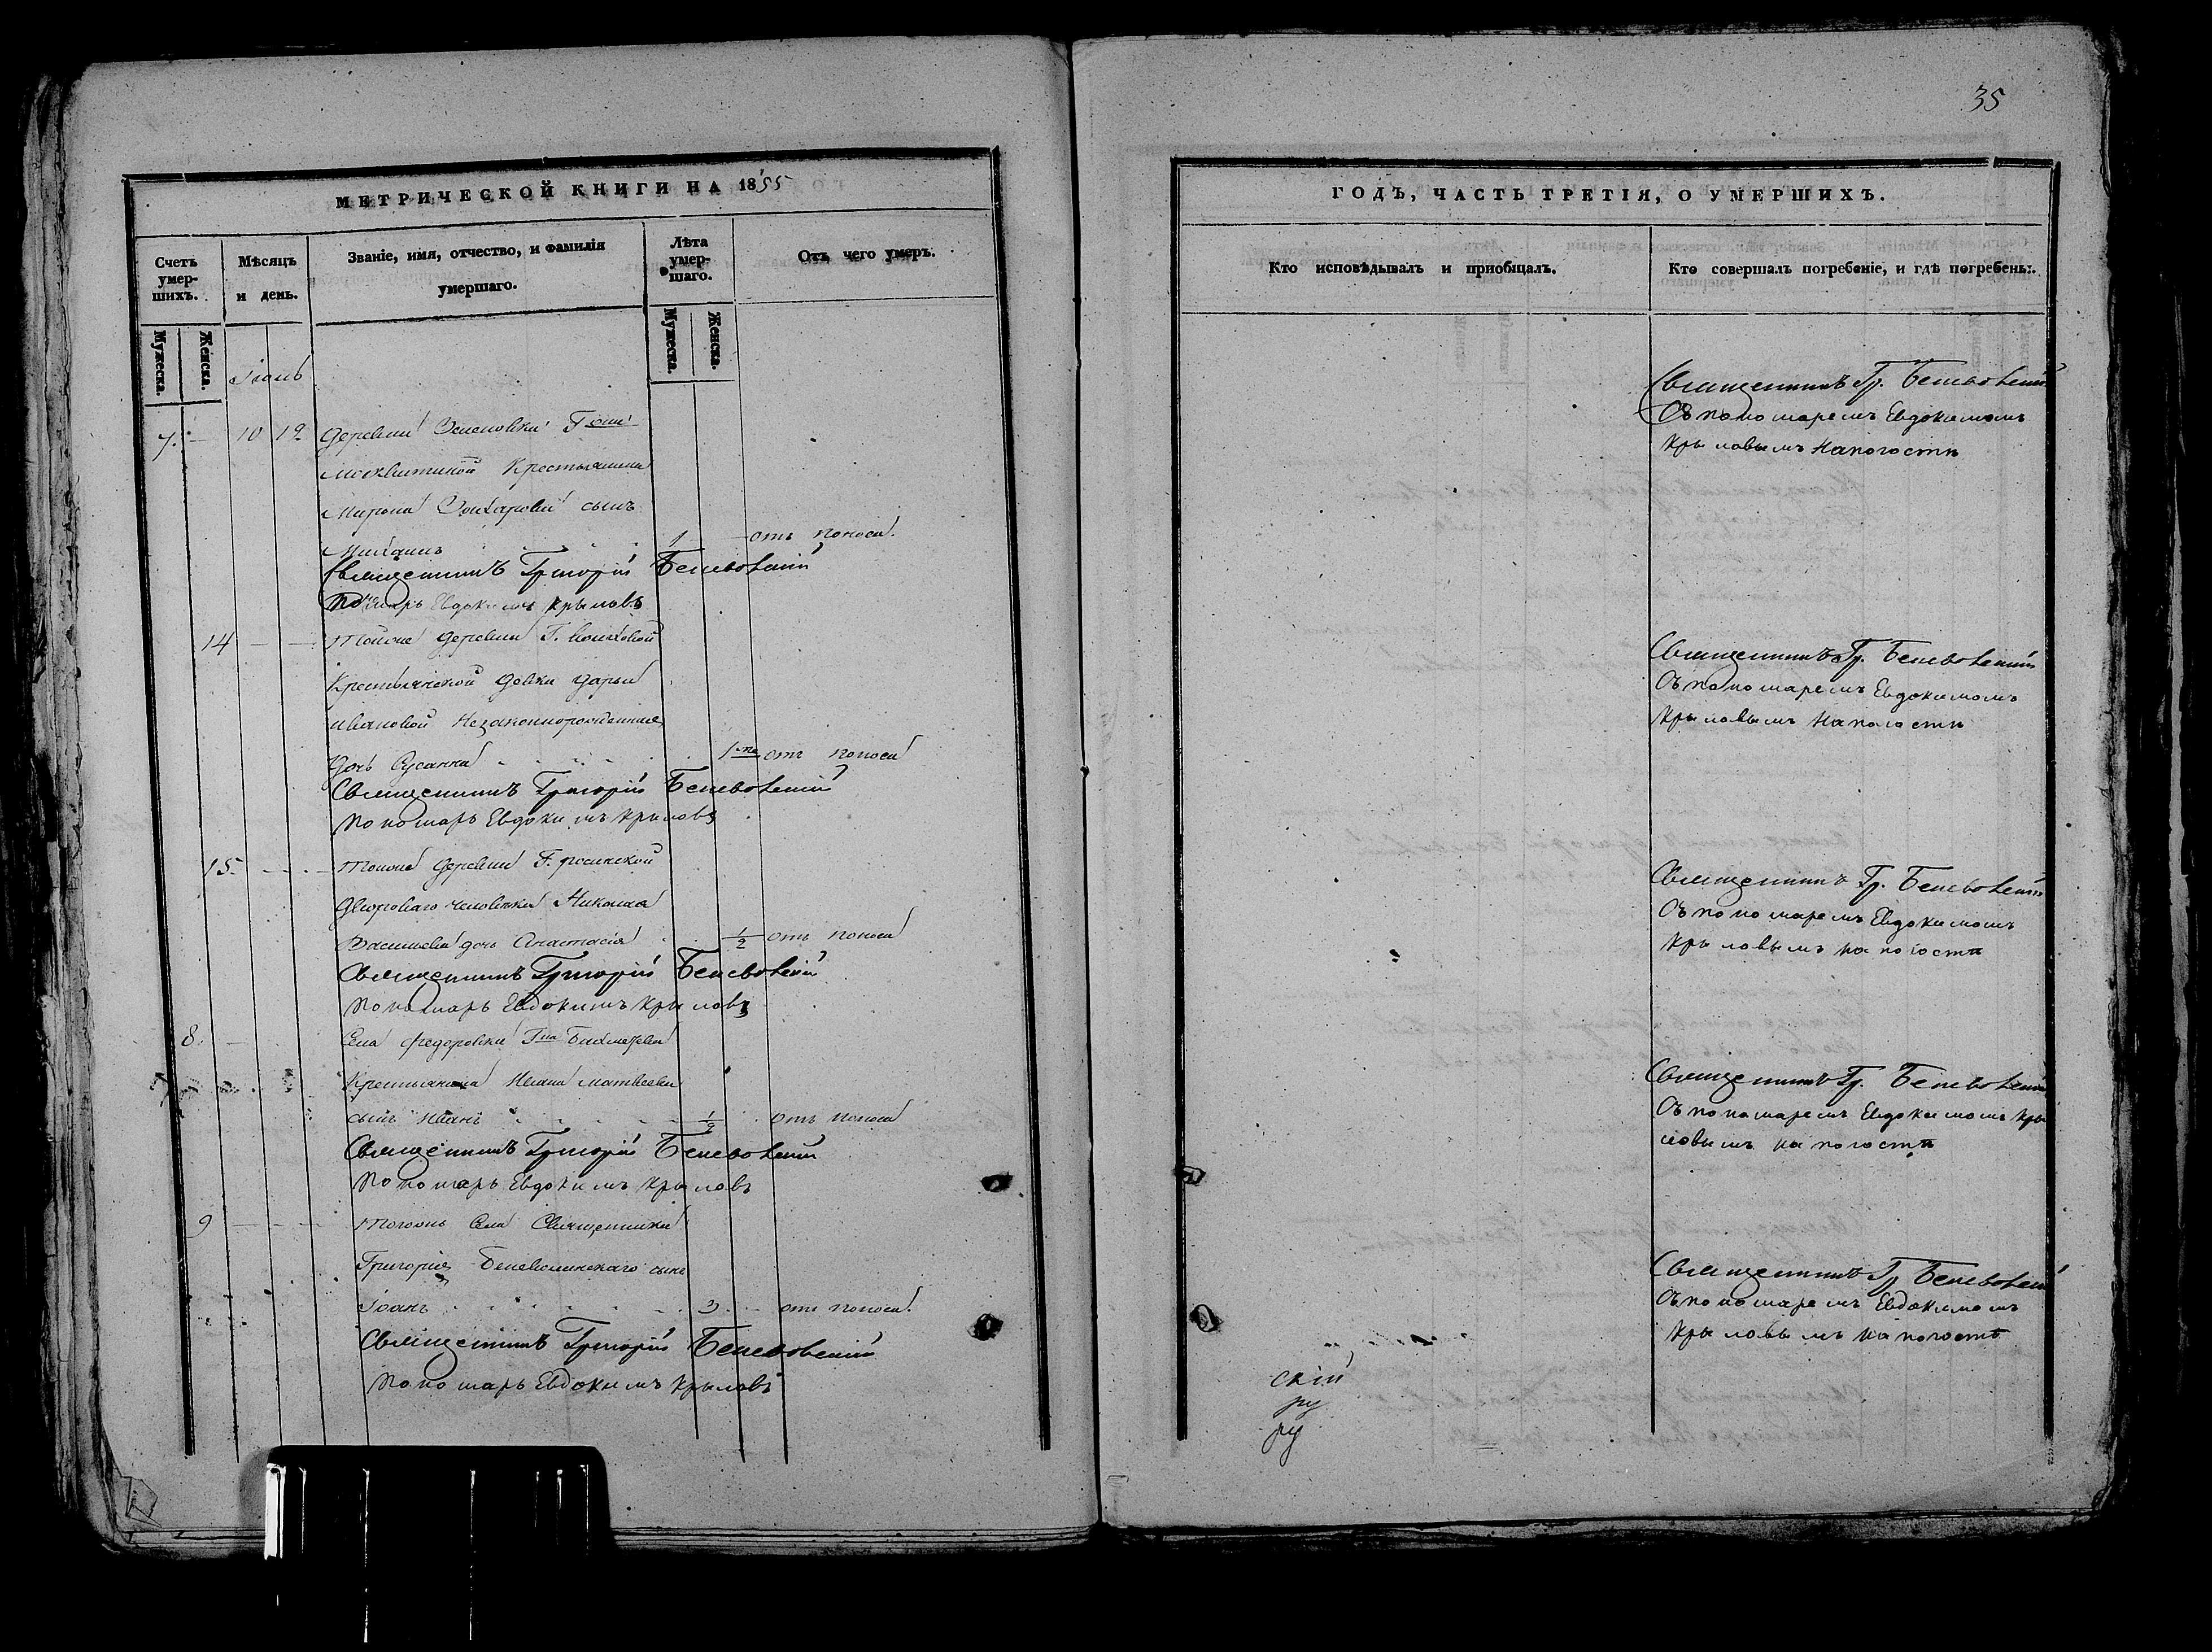 МЕТРИЧЕСКОЙ КНИГИ НА 1855
Счетъ умер-шихъ.
Мѣсяцъ и день.
Званіе, имя, отчество, и фамилія умершаго.
Лѣта умер-шаго.
Отъ чего умеръ.
Мужеска.
Женска.
Мужеска.
Женска.
7. 10 12 деревни
Крестьянина
Мирона сынъ
Михаилъ 1 отъ поноса.
Священникъ Григорій Беневоленскій
Пономарь Евдокимъ Крыловъ
14 Тойже деревни Г.
Крестьянской девки Дарьи
Ивановой Незаконнорожденная
дочь Сусанна 1 отъ поноса
Священникъ Григорій Беневоленскій
Пономарь Евдокимъ Крыловъ
15. Тойже деревни Г.
Двороваго человѣка Николая
Васильева дочь Анастасія 1/2 отъ поноса
Священникъ Григорій Беневоленскій
Пономарь Евдокимъ Крыловъ
8. Села Федоровки Гна
Крестьянина Ивана Матвеева
сынъ Иванъ 1/2 отъ поноса
Священникъ Григорій Беневоленскій
Пономарь Евдокимъ Крыловъ
9 Тогоже Села Священника
Григорія Беневоленскаго сынъ
Іоанъ 3 отъ поноса.
Священникъ Григорій Беневоленскій
Пономарь Евдокимъ Крыловъ
35
ГОДЪ, ЧАСТЬ ТРЕТІЯ, О УМЕРШИХЪ.
Кто исповѣдывалъ и пріобщалъ.
Кто совершалъ погребеніе, и гдѣ погребены.
Священникъ Гр. Беневоленскій
Съ пономаремъ Евдокимомъ
Крыловымъ на погостѣ
Священникъ Гр. Беневоленскій
Съ пономаремъ Евдокимомъ
Крыловымъ на погостѣ
Священникъ Гр. Беневоленскій
Съ пономаремъ Евдокимомъ
Крыловымъ на погостѣ
Священникъ Гр. Беневоленскій
Съ пономаремъ Евдокимомъ Кры
ловымъ на погостѣ
Священникъ Гр Беневоленскій
Съ пономаремъ Евдокимомъ
Крыловымъ на погостѣ
скій
ру
ру